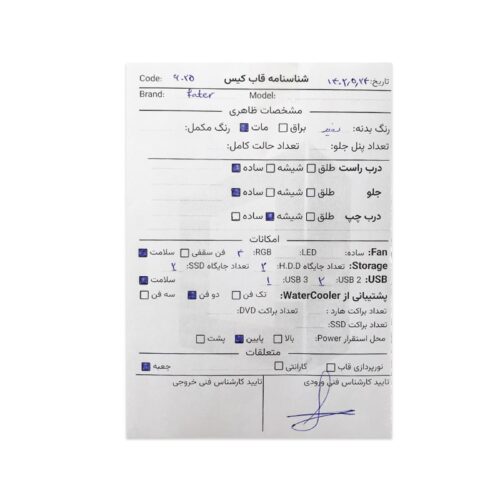 تاریخ: ۱۴۰۲,۵,۲۴ شناسنامه قاب کیس Code: ۹۰۲۵
Brand: fater Model:
مشخصات ظاهری
رنگ بدنه: سفید براق مات رنگ مکمل:
تعداد پنل جلو: تعداد حالت کامل:
درب راست طلق شیشه ساده
جلو طلق شیشه ساده
درب چپ طلق شیشه ساده
امکانات
Fan: ساده: LED: RGB: فن سقفی سلامت
Storage: تعداد جایگاه H.D.D: ۲ تعداد جایگاه SSD: ۲
USB: USB 2: ۲ USB 3: ۱ سلامت
پشتیبانی از WaterCooler: تک فن دو فن سه فن
تعداد براکت هارد : تعداد براکت DVD:
تعداد براکت SSD:
محل استقرار Power: بالا پایین پشت
متعلقات
نورپردازی قاب گارانتی جعبه
تایید کارشناس فنی ورودی تایید کارشناس فنی خروجی